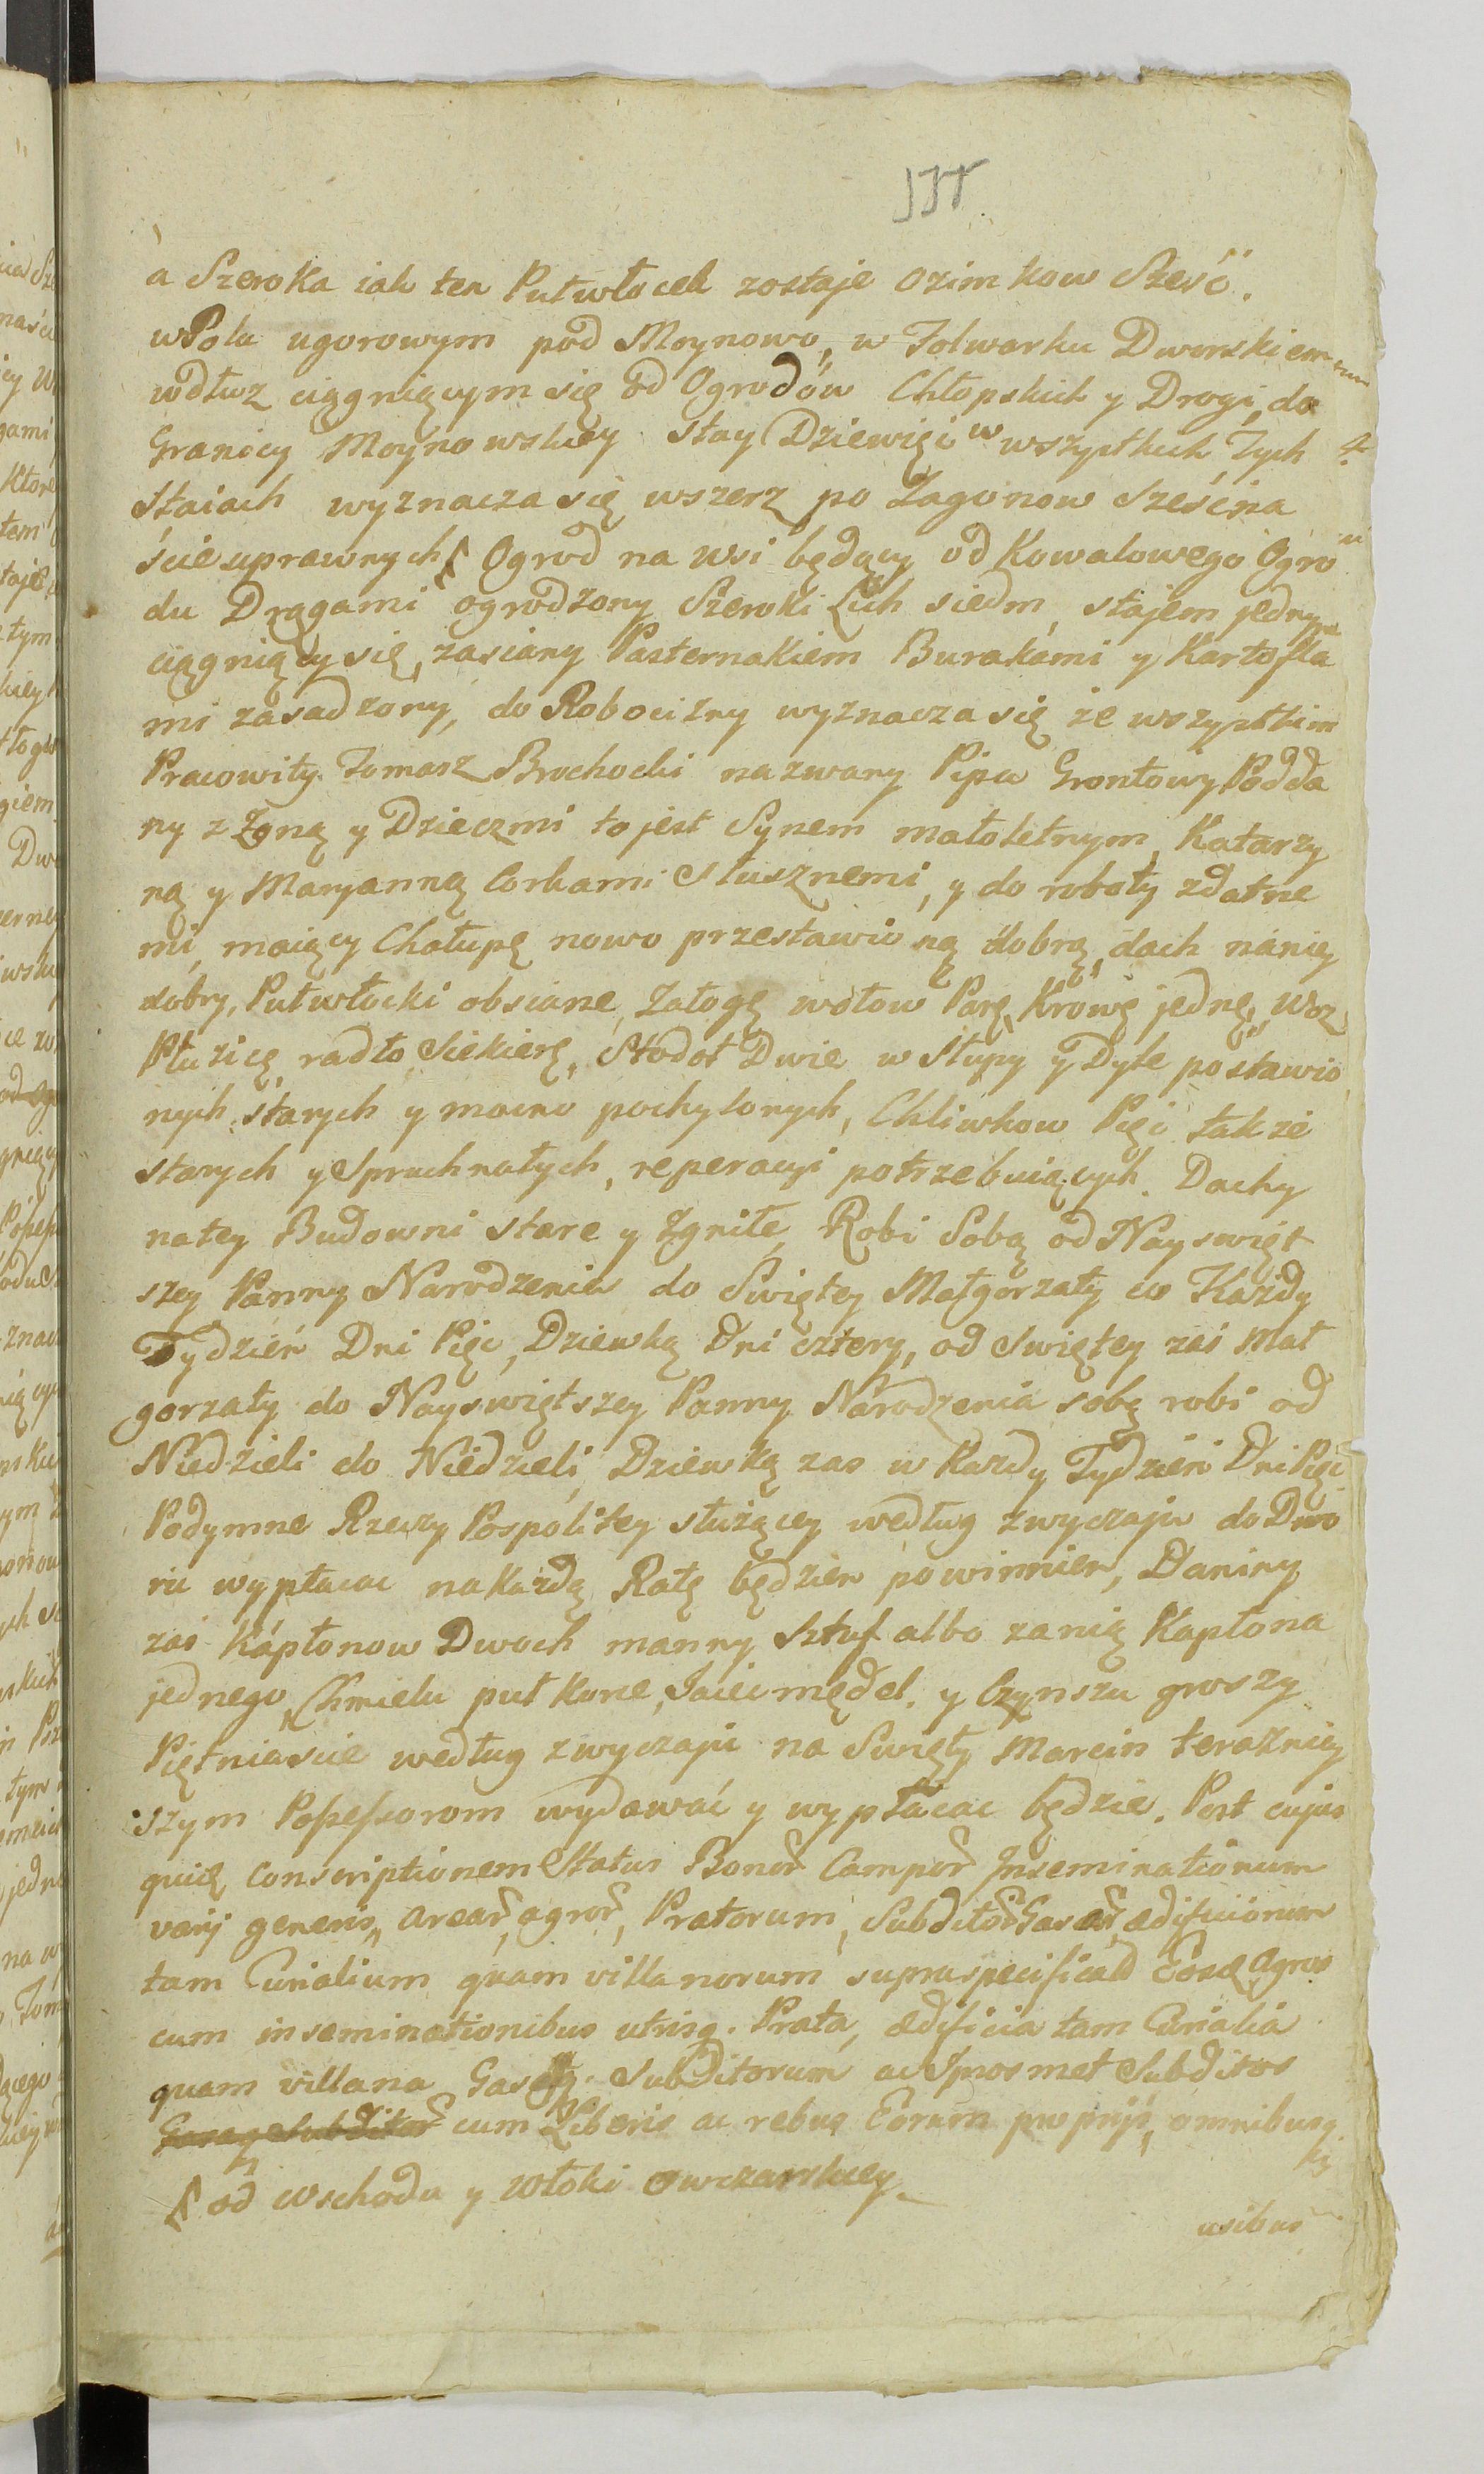 a Szeroka iak ten Pułwłocek zostaje ozimkow Sześć.
w Polu ugorowym pod Moynowo, w Folwarku Dworskiem
wdłuż ciągniącym się od Ogrodów Chłopskich y Drogi, do
Granicy Moynowskiey Stay Dziewięć w wszystkich Tych 4.
Staiach wyznacza się wszerz po Zagonow Sześćna
ście uprawnych Ogrod na Wsi będący od Kowalowego Ogro
du Drągami ogrodzony Szeroki Lich siedm, stajem jednym
ciągniący się, zasiany Pasternakiem Burakami y Kartofla
mi zasadzony, do Robocizny wyznacza się ze wszystkim
Pracowity Tomasz Brochocki nazwany Pipa Gontowy Podda
ny z Żoną y Dziecmi to jest Synem małoletnym, Katarzy
ną y Maryanną Corkami Słusznemi, y do roboty zdatne
mi, maiący Chałupę nowo przestawioną dobrą, dach naniey
dobry, Pułwłocki obsiane, Załogę wołow Parę, Krowę jednę, Woz
Płużicę radło, Siekierę, Stodoł Dwie w Słupy y Dyle postawio
nych starych y mocno pochylonych, Chliwkow Pięć także
starych y Spruchnałych, reperacyi potrzebuiących. Dachy
natey Budowni stare y Zgniłe, Robi Sobą od Nayswięt
szey Panny Narodzenia do Swiętey Małgorzaty co Każdy
Tydzień Dni Pięć, Dziewką Dni cztery, od Swiętey zaś Mał
gorzaty do Nayswiętszey Panny Narodzenia sobą robi od
Niedzieli do Niedzieli, Dziewką zas w Każdy Tydzień Dni Pięć
Podymne Rzeczy Pospolitey służącey według zwyczaju do Dwo
ru wypłacac na Każdą Ratę będzien powinnien, Daniny
zaś Kápłonow Dwoch manny Sztuf albo zanię Kapłona
jednego, Chmielu puł Korce, Jaiec mędel. y Czynszu groszy
Piętnaście według zwyczaju na Swięty Marcin teraznieỳ
szym Possessorom wydawać y wypłacac będzie. Post cujus
quie Conscriptionem Status Bonor Campor Inseminationum
varij generis, Arear, agror, Pratorum, Subditor Gazar, ædificiorum
tam Curialium quam villanorum supraspecificat Eosq Agros
cum inseminationibus utrisq. Prata, ædificia tam Curialia
quam villana Subditorum ac Ipsosmet Subditos
cum Liberis ac rebus Eorum proprijs, omnibusq
od wschodu y włoki owczarskiey
usibus